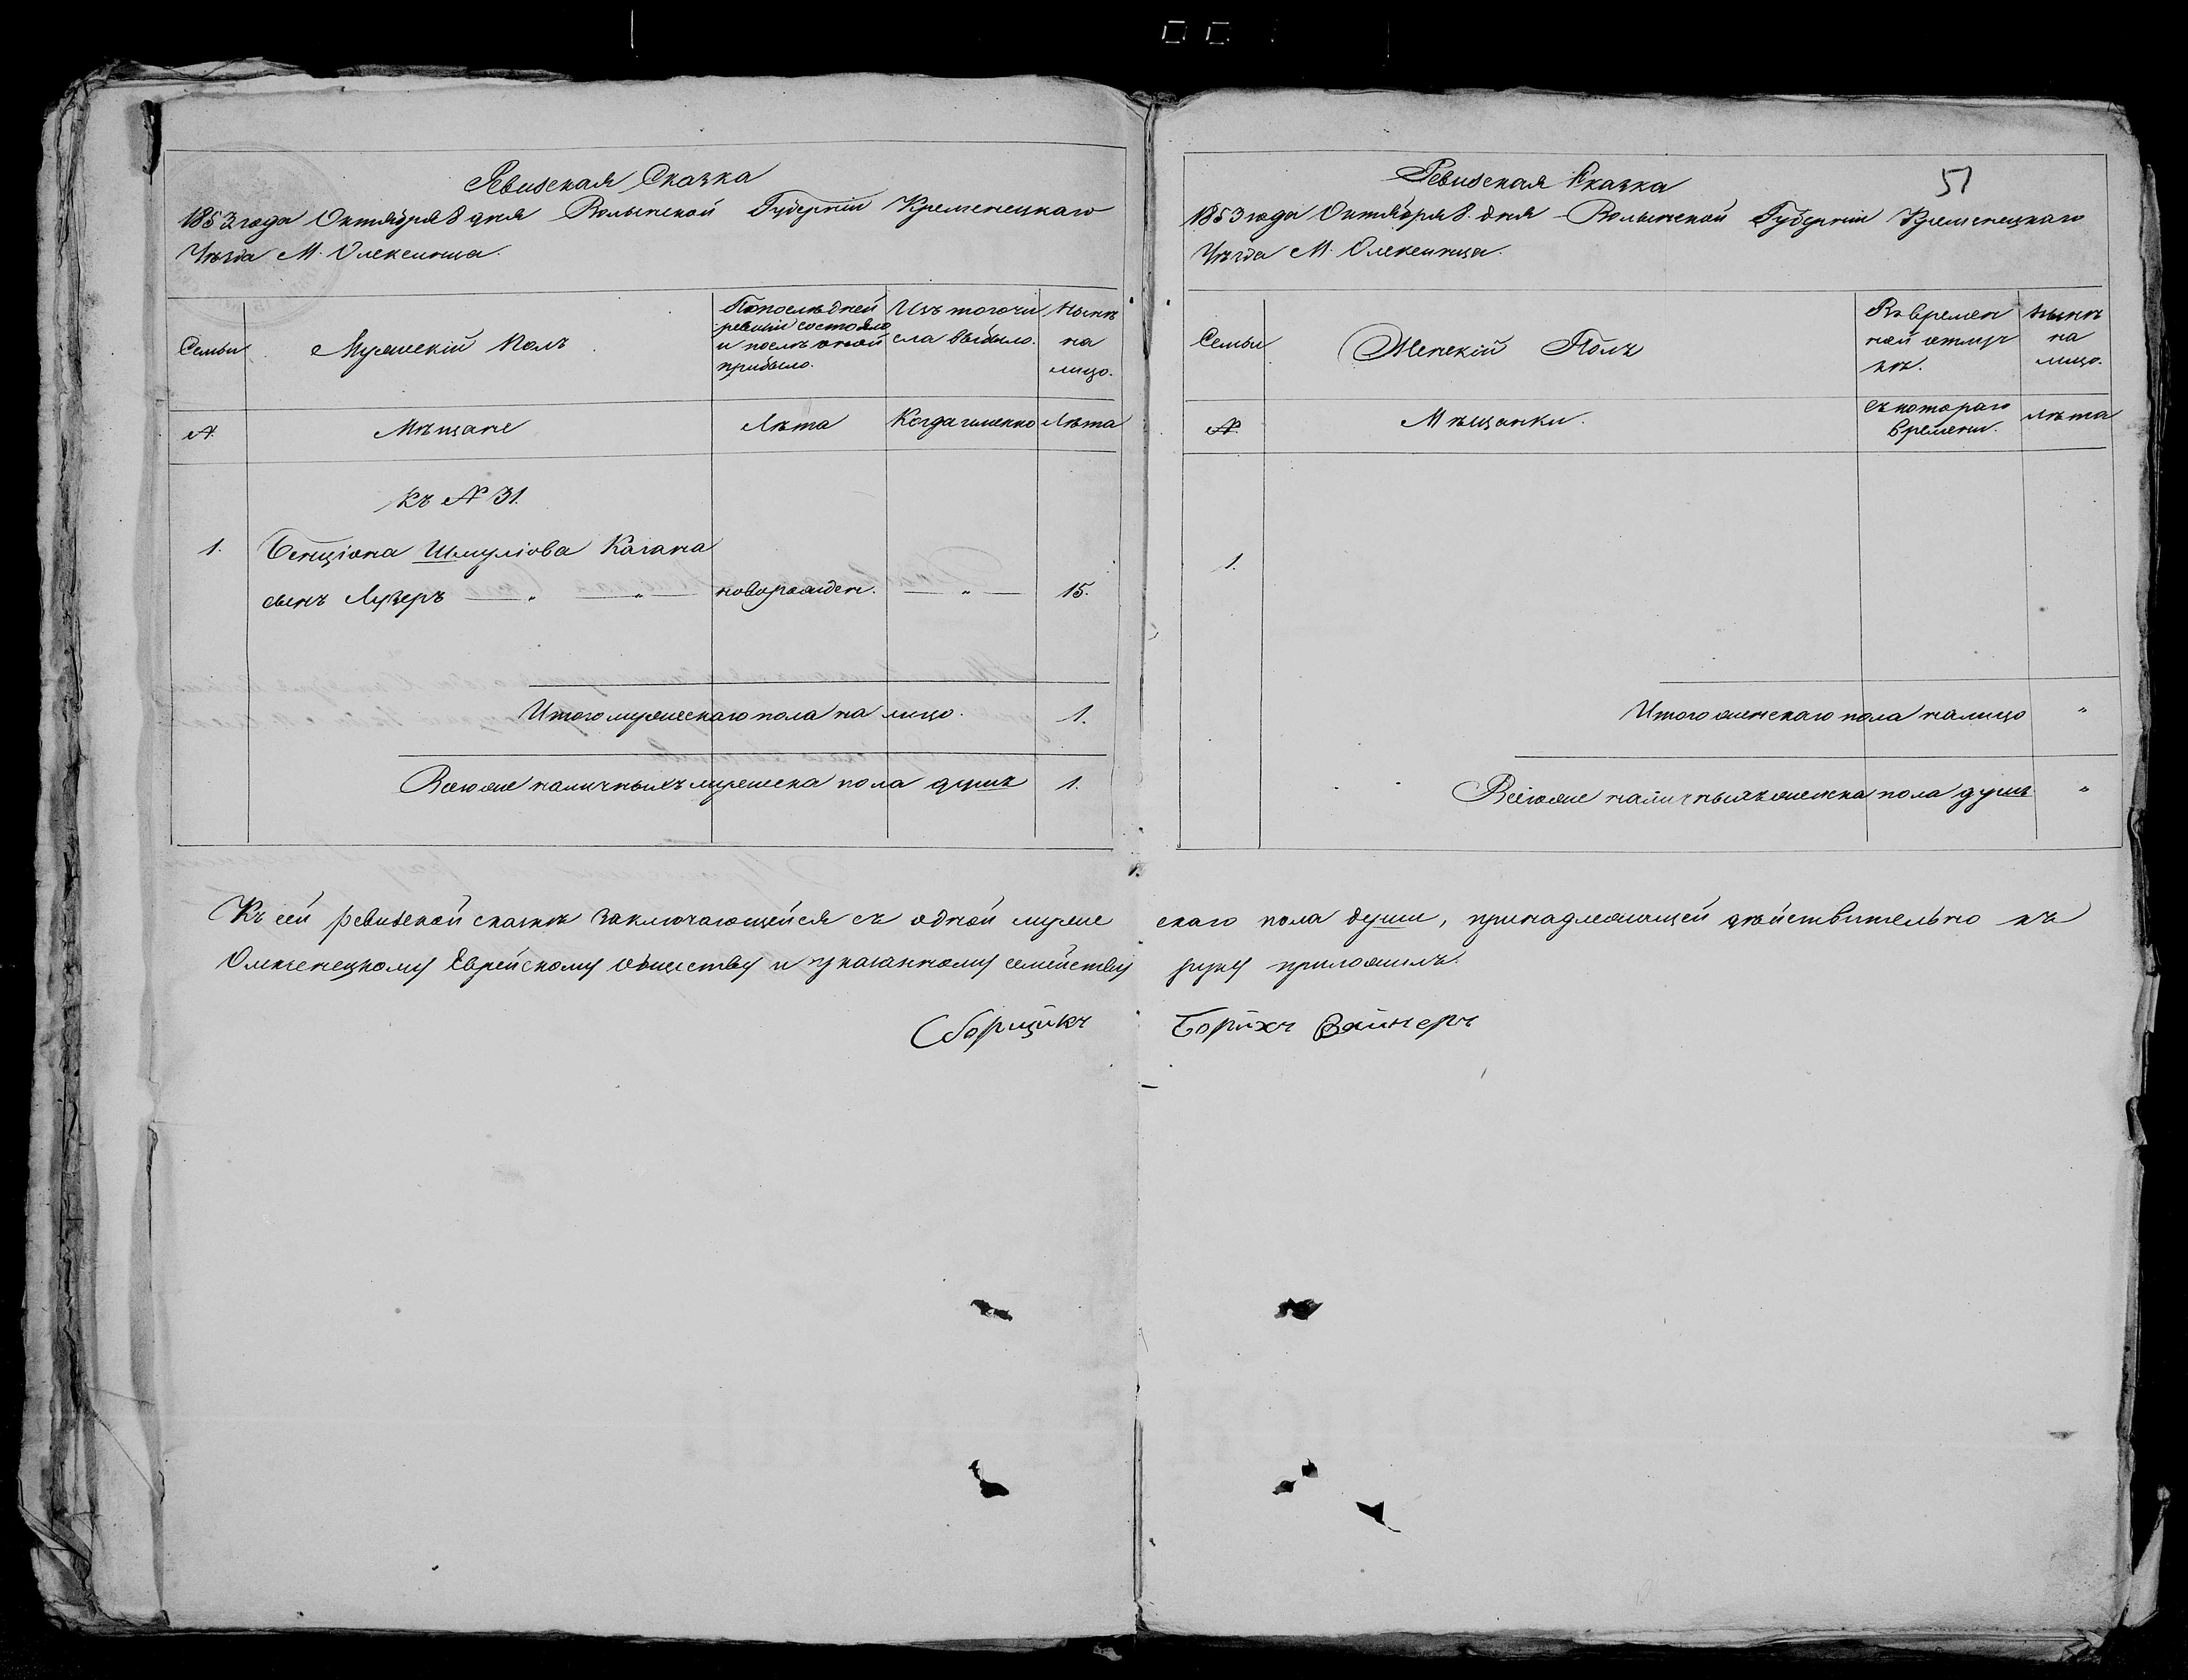 Ревизская Сказка
1853 года Октября 8 дня Волынской Губерніи Кременецкаго
Уѣзда М. Олексинца.
Семьи
Мужескій Полъ
По послѣдней
ревизіи состояло
и послѣ оной
прибыло.
Изъ того чи
сла выбыло.
Нынѣ
на
лицо.
№
Мѣщане
Лѣта
Когда именно
Лѣта
Къ № 31.
1. Бенціона Шмуліова Кагана
сынъ Лузеръ — „ — „ — новорожден. — „ — 15.
Итого мужескаго пола на лицо. 1.
Всего же наличныхъ мужеска пола душъ 1.
Ревизская Сказка
51
1853 года Октября 8. дня Волынской Губерніи Кременецкаго
Уѣзда М. Олексинца.
Семьи
Женскій Полъ
Во времен
ной отлуч
кѣ.
Нынѣ
на
лицо.
№
Мѣщанки.
Съ котораго
времени.
Лѣта
1.
Итого женскаго пола налицо „
Всего же наличныхъ женска пола душъ „
Къ сей ревизской сказкѣ заключающейся съ одной муже скаго пола души, принадлежащей дѣйствительно къ
Олексенецкому Еврейскому обществу и указанному семейству руку приложилъ.
Сборщикъ Борухъ Вайнеръ